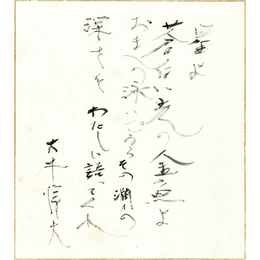 星よ
蒼白い光の金魚よ
おまへの泳いでゐるその淵の
深さを わたしに語つてくれ
大木惇夫